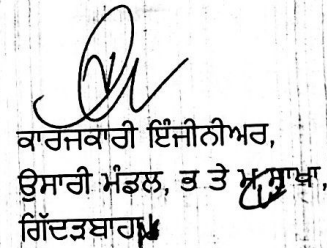 ਕਾਰਜਕਾਰੀ ਇੰਜੀਨੀਅਰ,
ਉਸਾਰੀ ਮੰਡਲ, ਭ ਤੇ ਮ ਸ਼ਾਖਾ,
ਗਿੱਦੜਬਾਹਾ